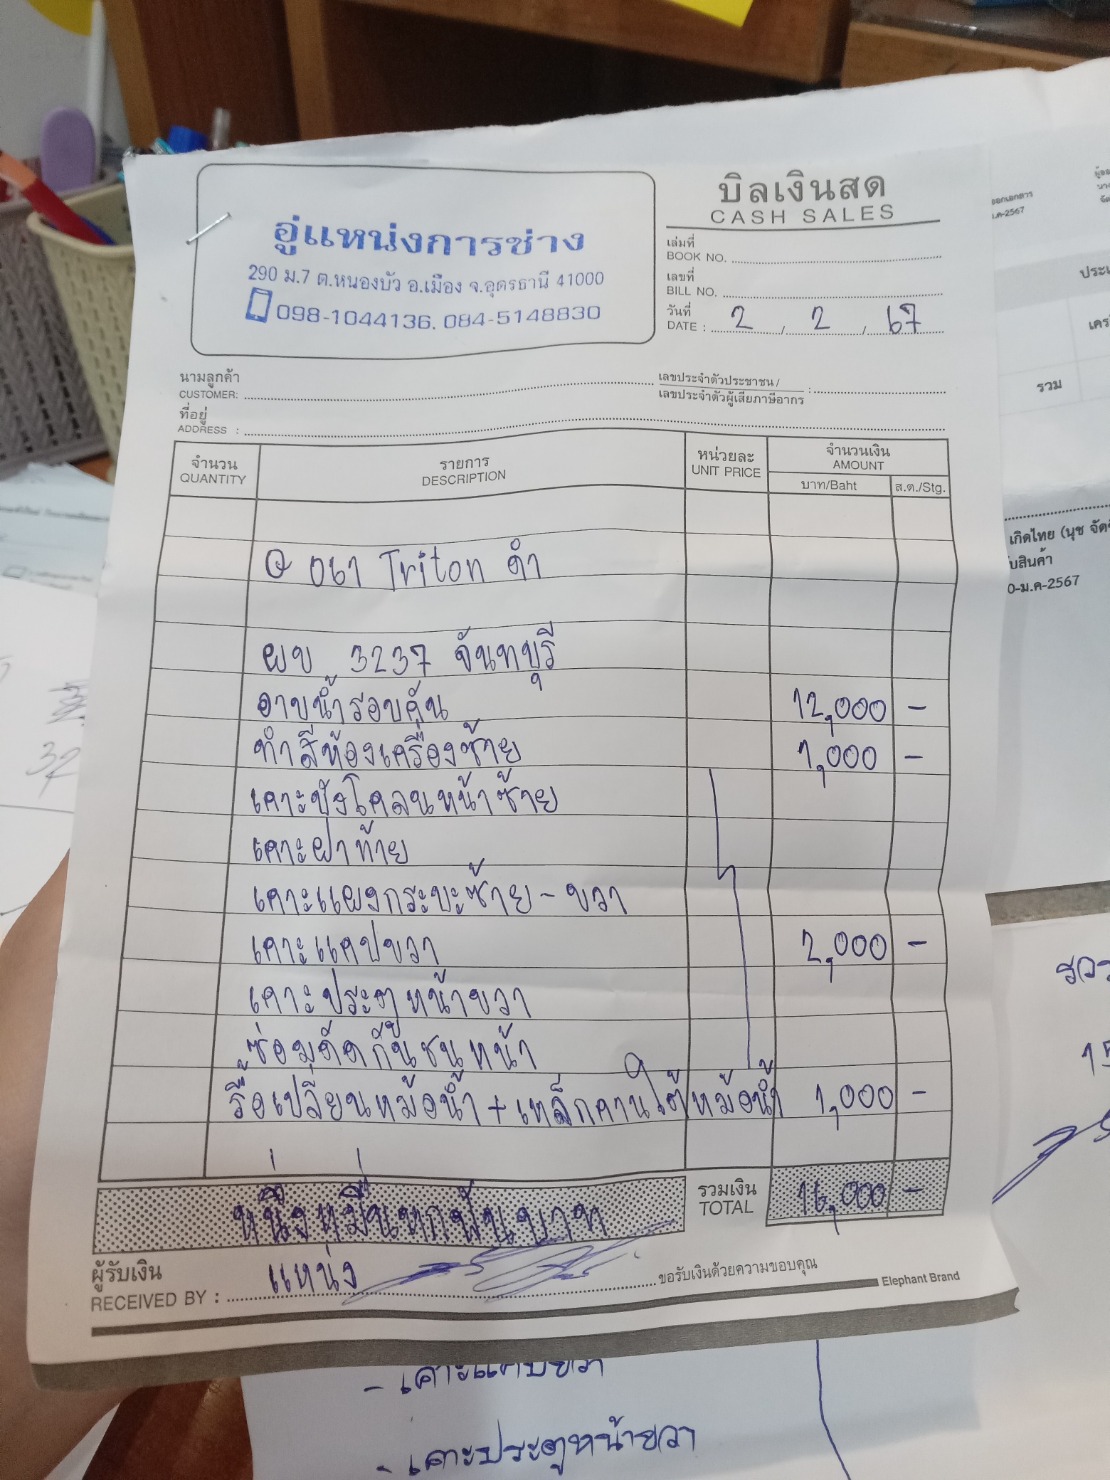 อู่แหน่งการช่าง
290 ม.7 ต.หนองบัว อ.เมือง จ.อุดรธานี 41000
098-1044136, 084-5148830
บิลเงินสด
CASH SALES
เล่มที่
BOOK NO.
เลขที่
BILL NO.
วันที่
DATE : 2 / 2 / 67
นามลูกค้า
CUSTOMER:
เลขประจำตัวประชาชน /
เลขประจำตัวผู้เสียภาษีอากร :
ที่อยู่
ADDRESS :
จำนวน
QUANTITY
รายการ
DESCRIPTION
หน่วยละ
UNIT PRICE
จำนวนเงิน
AMOUNT
บาท/Baht
ส.ต./Stg.
061 Triton ดำ
ผข 3237 จันทบุรี
อาบน้ำรอบคัน 12,000 -
ทำสีห้องเครื่องซ้าย 1,000 -
เคาะบังโคลนหน้าซ้าย
เคาะฝาท้าย
เคาะแผงกระบะซ้าย - ขวา
เคาะแคปขวา 2,000 -
เคาะประตูหน้าขวา
ซ่อมดัดกันชนหน้า
รื้อเปลี่ยนหม้อน้ำ + เหล็กคานใต้หม้อน้ำ 1,000 -
หนึ่งหมื่นหกพันบาท
รวมเงิน
TOTAL
16,000 -
ผู้รับเงิน
RECEIVED BY : แหน่ง
ขอรับเงินด้วยความขอบคุณ
Elephant Brand
- เคาะแคปขวา
- เคาะประตูหน้าขวา
รวม
เกิดไทย (นุช
-2567
0-ม.ค-2567